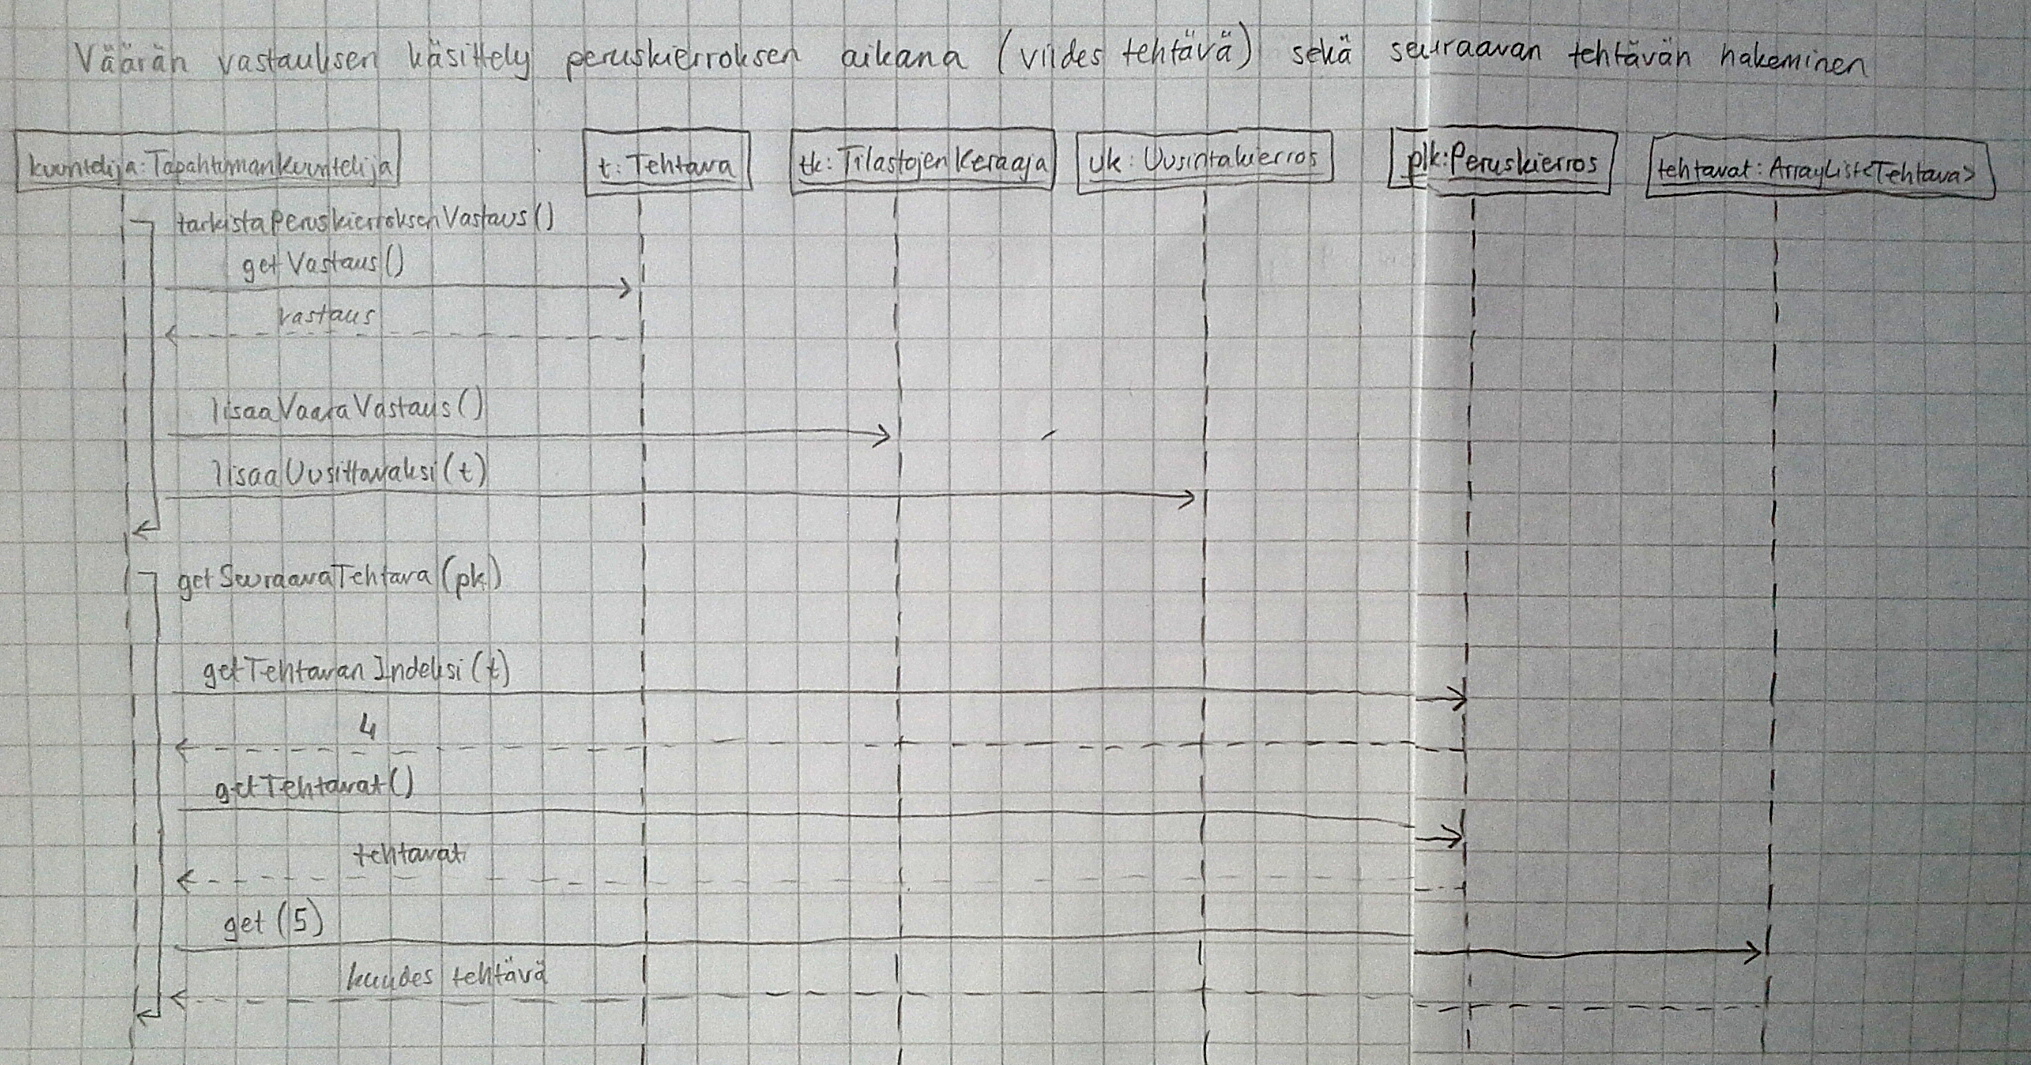 Väärän vastauksen käsittely peruskierroksen aikana (viides tehtävä) sekä seuraavan tehtävän hakeminen
kuuntelija:Tapahtumankuuntelija
t:Tehtava
tk:TilastojenKeraaja
uk:Uusintakierros
pk:Peruskierros
tehtavat:ArrayList<Tehtava>
tarkistaPeruskierroksenVastaus()
getVastaus()
vastaus
lisaaVaaraVastaus()
lisaaUusittavaksi(t)
getSeuraavaTehtava(pk)
getTehtavanIndeksi(t)
4
getTehtavat()
tehtavat
get(5)
kuudes tehtävä